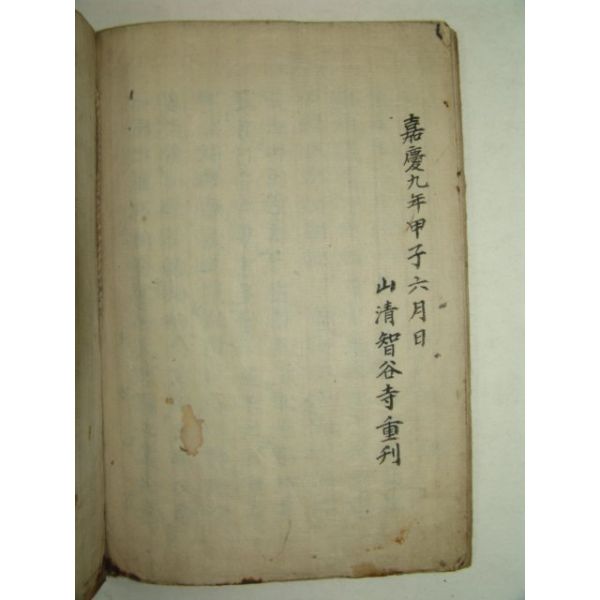 嘉慶九年甲子六月日
山清智谷寺重刋